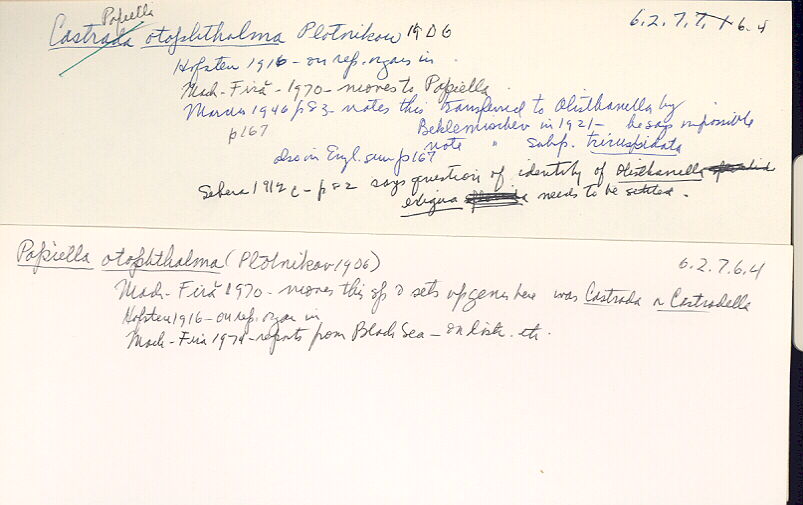 Papiella
Castrada otophthalma Plotnikow 1906 6.2.7.7.1 6.4
Hofsten 1916 - on rep. organs in.
Mack-Firă - 1970 - moves to Papiella
Marcus 1946 p 83 - notes this transferred to Olisthanella by
p167 Beklemischev in 1921 - he says impossible
note " subsp. truncuspidata
also in Engl. sum p167
Sekera 1912 c - p 82 says question of identity of Olisthanella
exigua needs to be settled.
Papiella otophthalma (Plotnikov 1906) 6.2.7.6.4
Mack-Firă 1970 - moves this sp & sets up genus here was Castrada or Castradella
Hofsten 1916 - on rep. organ in
Mack-Firă 1974 - reports from Black Sea - on distr. etc.